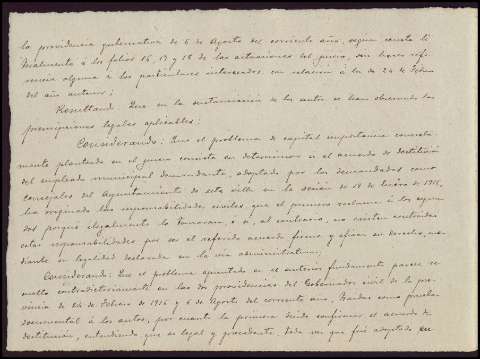 la providencia gubernativa de 6 de Agosto del corriente año, segun consta li
teralmente á los folios 16, 17 y 18 de las actuaciones del juicio, sin hacer refe
rencia alguna á los particulares interesados en relacion á la de 24 de Febrero
del año anterior;
Resultando: Que en la sustanciacion de los autos se han observado las
prescripciones legales aplicables;
Considerando: Que el problema de capital importancia concreta-
mente planteado en el juicio consiste en determinar si el acuerdo de destitución
del empleado municipal demandante, adoptado por los demandados como
Concejales del Ayuntamiento de esta villa en la sesión de 18 de Enero de 1916,
ha originado las responsabilidades civiles que el primero reclama á los segun
dos porque ilegalmente lo tomaran, ó si, al contrario, no existen contraidas
estas responsabilidades por ser el referido acuerdo firme y eficaz en derecho, me
diante su legalidad declarada en la vía administrativa;
Considerando: Que el problema apuntado en el anterior fundamento parece re
suelto contradictoriamente en las dos providencias del Gobernador civil de la pro
vincia de 24 de Febrero de 1916 y 6 de Agosto del corriente año, traidas como prueba
documental á los autos, por cuanto la primera desde confirmar el acuerdo de
destitución, entendiendo que es legal y procedente, toda vez que fué adoptado en